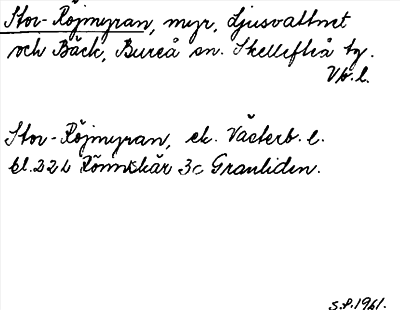 Stor-Röjmyran, myr, Ljusvattnet
och Bäck, Bureå sn. Skellefteå tg.
Vb. l.
Stor-Röjmyran, ek. Västerb. l.
bl. 22 L Rönnskär 3c Granliden.
S.P. 1961.